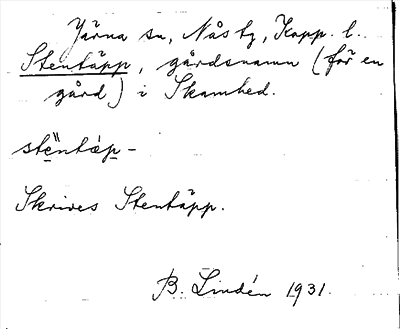 Järna sn, Nås tg, Kopp. l.
Stentäpp, gårdsnamn (för en
gård) i Skamhed.
stèntǽp-
Skrives Stentäpp.
B. Lindén 1931.